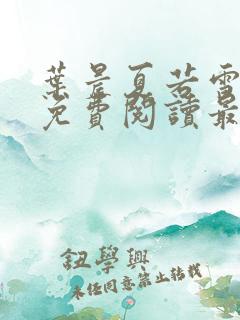 葉晨夏若雪
免費閱讀最
鈕學興
未經同意禁止轉載